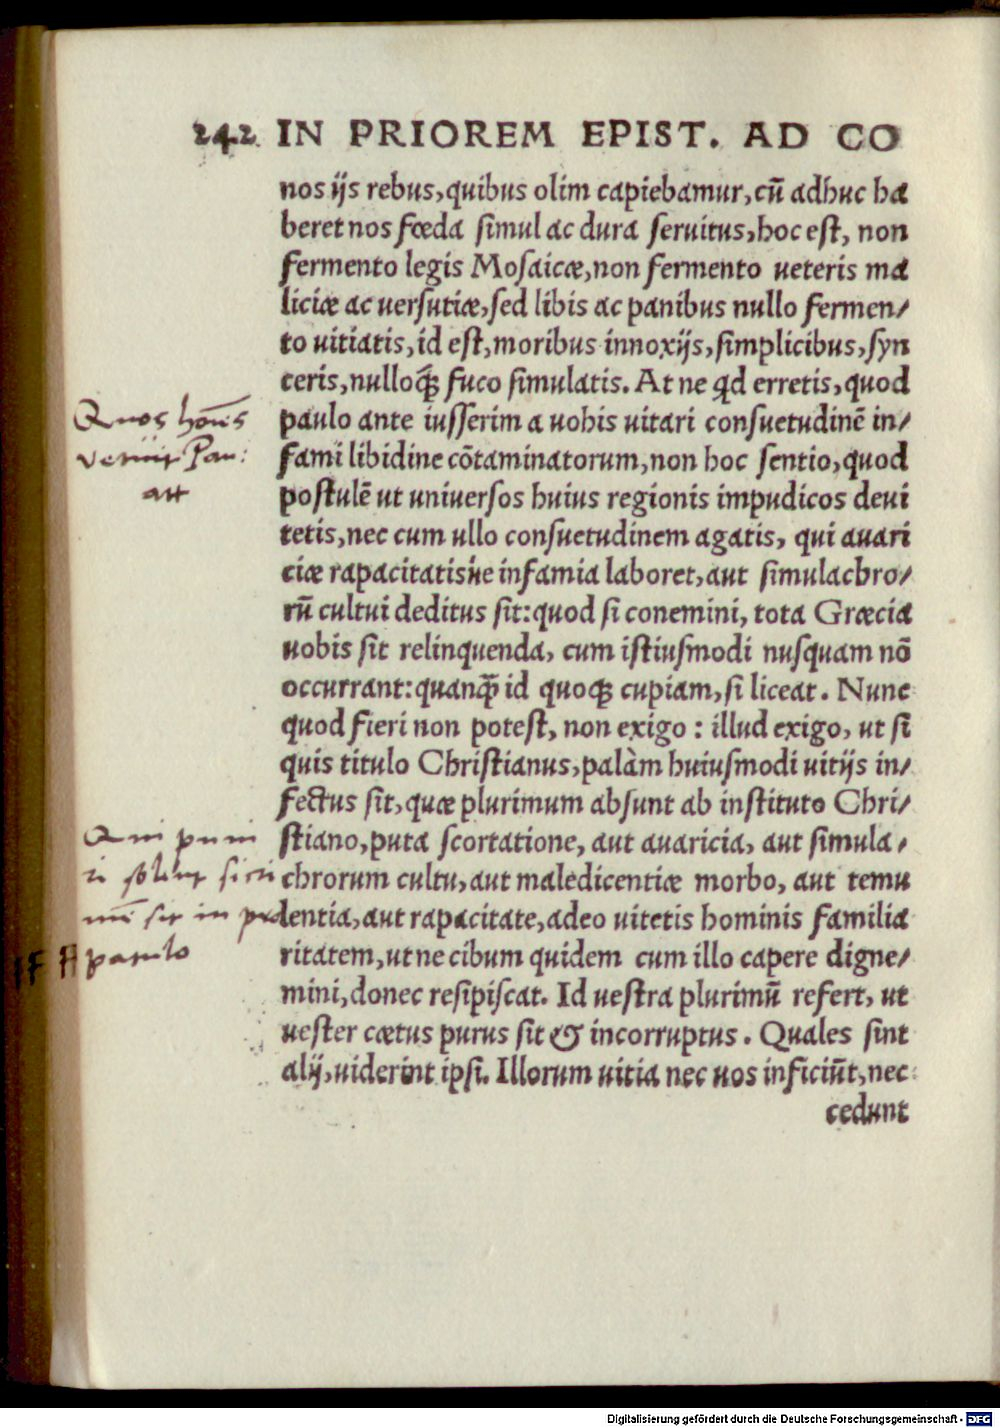 242 IN PRIOREM EPIST. AD CO
nos ijs rebus, quibus olim capiebamur, cū adhuc ha
beret nos fœda simul ac dura seruitus, hoc est, non
fermento legis Mosaicæ, non fermento ueteris ma
liciæ ac uersutiæ, sed libis ac panibus nullo fermen/
to uitiatis, id est, moribus innoxijs, simplicibus, syn
ceris, nulloq́; fuco simulatis. At ne qd erretis, quod
paulo ante iusserim a uobis uitari consuetudinē in/
fami libidine cōtaminatorum, non hoc sentio, quod
postulē ut uniuersos huius regionis impudicos deui
tetis, nec cum ullo consuetudinem agatis, qui auari
ciæ rapacitatisúe infamia laboret, aut simulachro/
rū cultui deditus sit: quod si conemini, tota Græcia
uobis sit relinquenda, cum istiusmodi nusquam nō
occurrant: quanq̃ id quoq; cupiam, si liceat. Nunc
quod fieri non potest, non exigo: illud exigo, ut si
quis titulo Christianus, palàm huiusmodi uitijs in/
fectus sit, quæ plurimum absunt ab instituto Chri/
stiano, puta scortatione, aut auaricia, aut simula/
chrorum cultu, aut maledicentiæ morbo, aut temu
lentia, aut rapacitate, adeo uitetis hominis familia
ritatem, ut ne cibum quidem cum illo capere digne/
mini, donec resipiscat. Id uestra plurimū refert, ut
uester cœtus purus sit & incorruptus. Quales sint
alij, uiderint ipsi. Illorum uitia nec uos inficiūt, nec
cedunt
Quos hoīes
vetuit Pau:
Qui puni
ri solent si cri
mē sit in pro
patulo
Digitalisierung gefördert durch die Deutsche Forschungsgemeinschaft - DFG